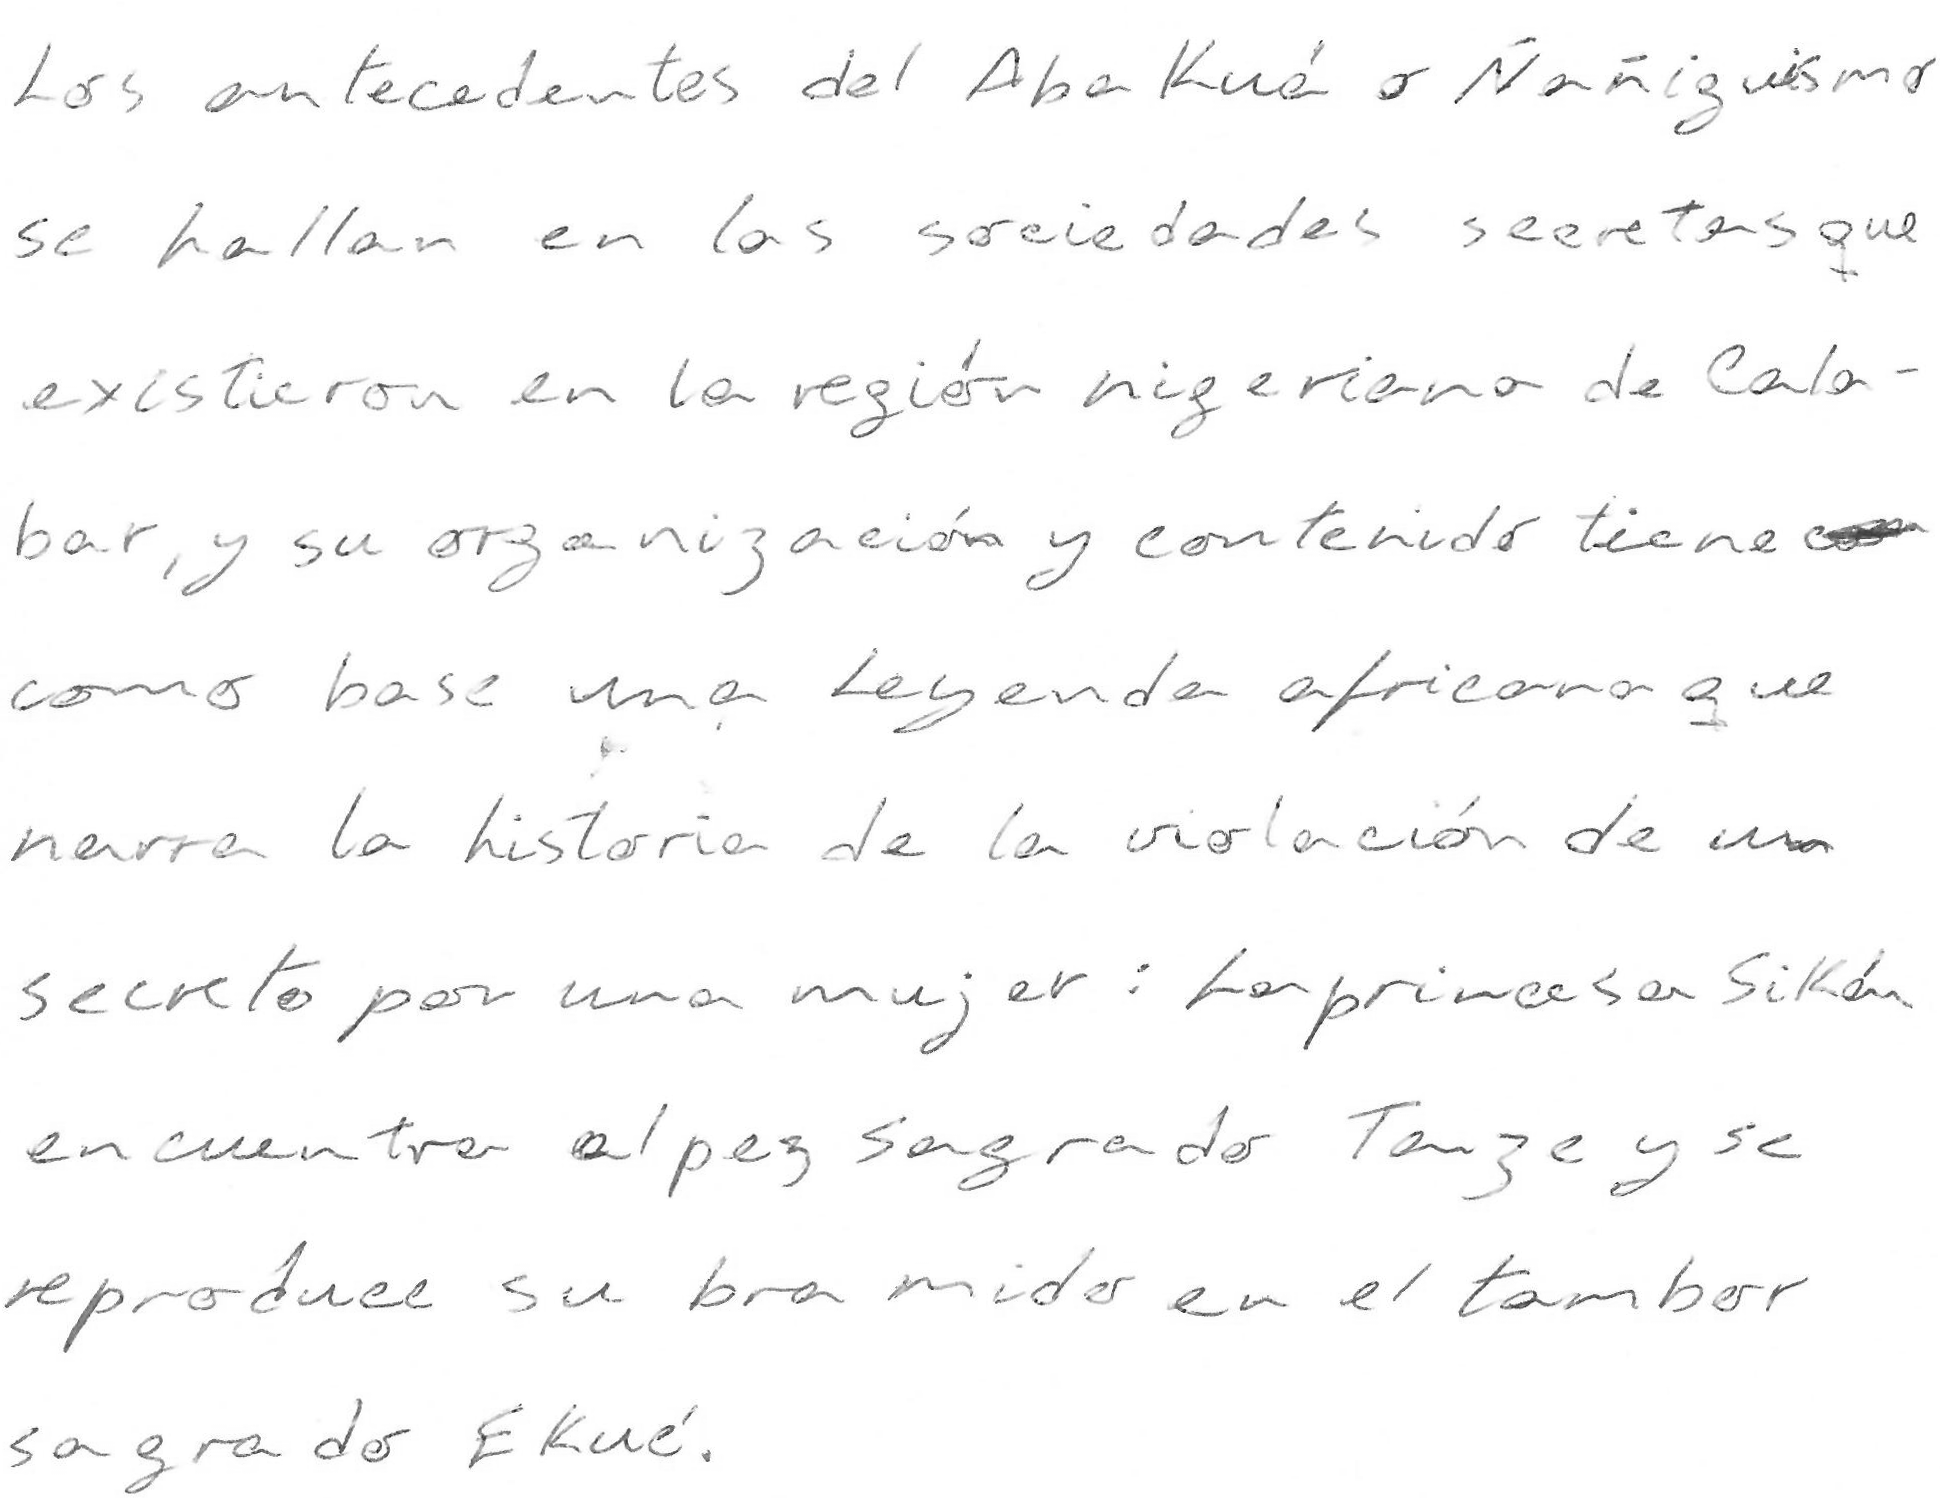 Los antecedentes del Abakuá o Ñañiguismo
se hallan en las sociedades secretas que
existieron en la región nigeriana de Cala-
bar, y su organización y contenido tiene
como base una Leyenda africana que
narra la historia de la violación de un
secreto por una mujer: La princesa Sikán
encuentra al pez sagrado Tanze y se
reproduce su bramido en el tambor
sagrado Ekué.